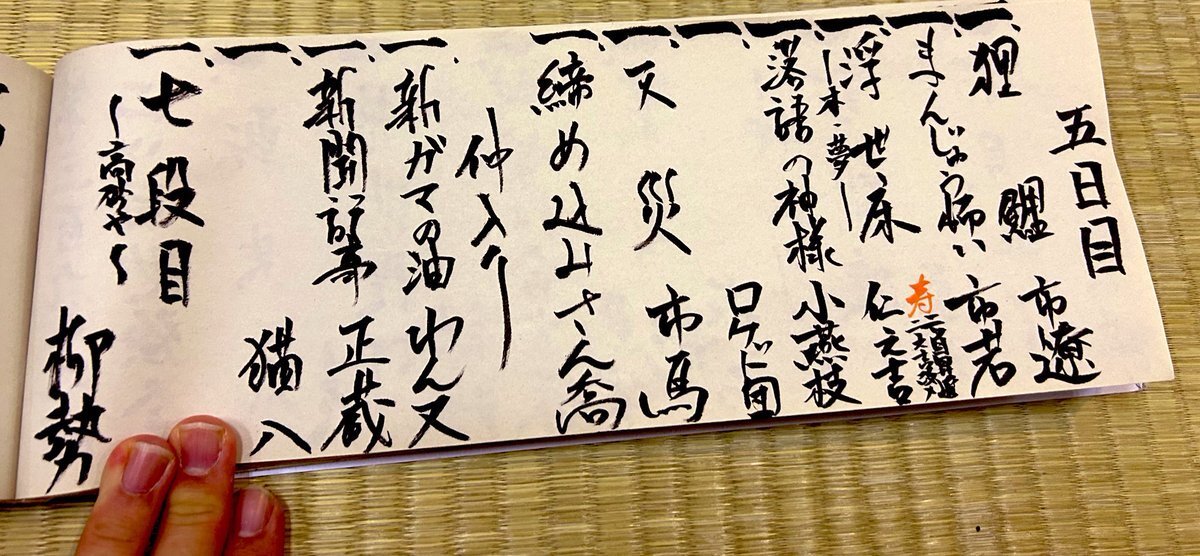 五日目
一、狸鯉 市遼
一、まんじゅう怖い 市若
寿
一、浮世床 仁之吉
〜本・夢〜
一、落語の神様 小燕枝
一、 ロケット団
一、天災 市馬
一、締め込み さん喬
仲入り
一、新ガマの油 わん丈
一、新聞記事 正蔵
一、 猫八
一、七段目
〜高砂や〜
柳勢